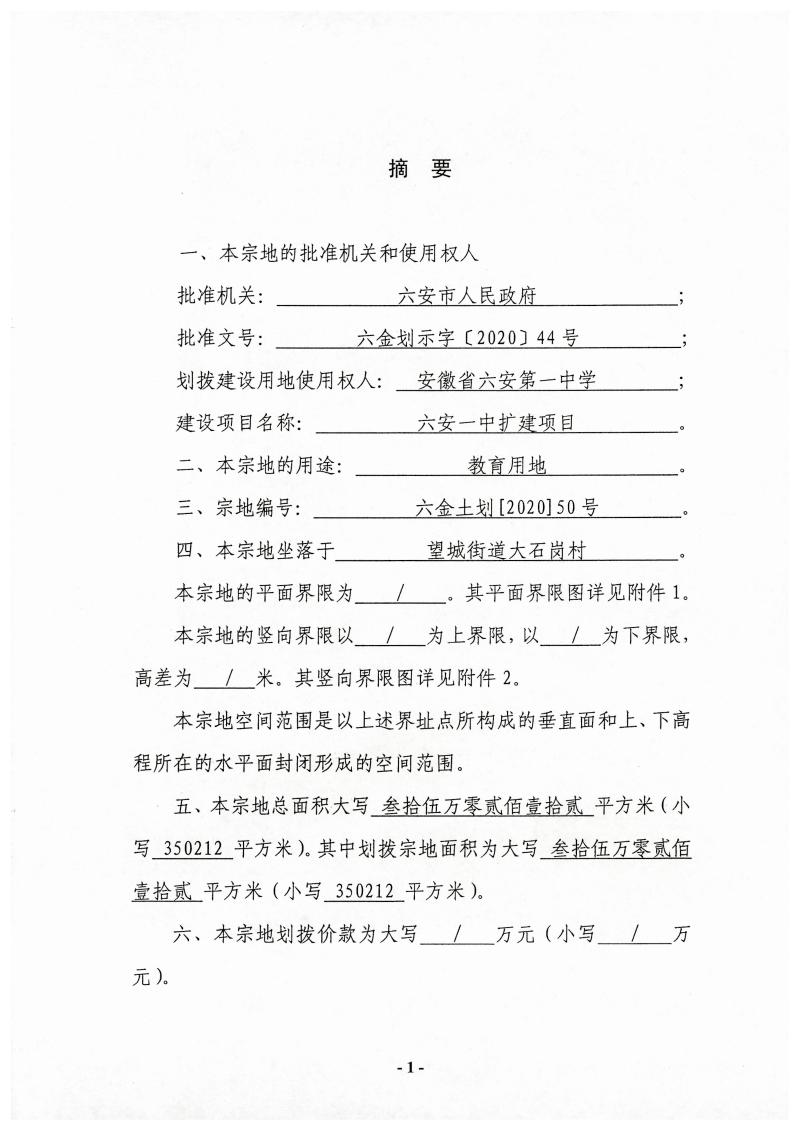 摘 要
一、本宗地的批准机关和使用权人
批准机关： 六安市人民政府 ；
批准文号： 六金划示字〔2020〕44 号 ；
划拨建设用地使用权人： 安徽省六安第一中学 ；
建设项目名称： 六安一中扩建项目 。
二、本宗地的用途： 教育用地 。
三、宗地编号： 六金土划[2020]50 号 。
四、本宗地坐落于 望城街道大石岗村 。
本宗地的平面界限为 / 。其平面界限图详见附件 1。
本宗地的竖向界限以 / 为上界限，以 / 为下界限，
高差为 / 米。其竖向界限图详见附件 2。
本宗地空间范围是以上述界址点所构成的垂直面和上、下高
程所在的水平面封闭形成的空间范围。
五、本宗地总面积大写 叁拾伍万零贰佰壹拾贰 平方米（小
写 350212 平方米）。其中划拨宗地面积为大写 叁拾伍万零贰佰
壹拾贰 平方米（小写 350212 平方米）。
六、本宗地划拨价款为大写 / 万元（小写 / 万
元）。
- 1 -